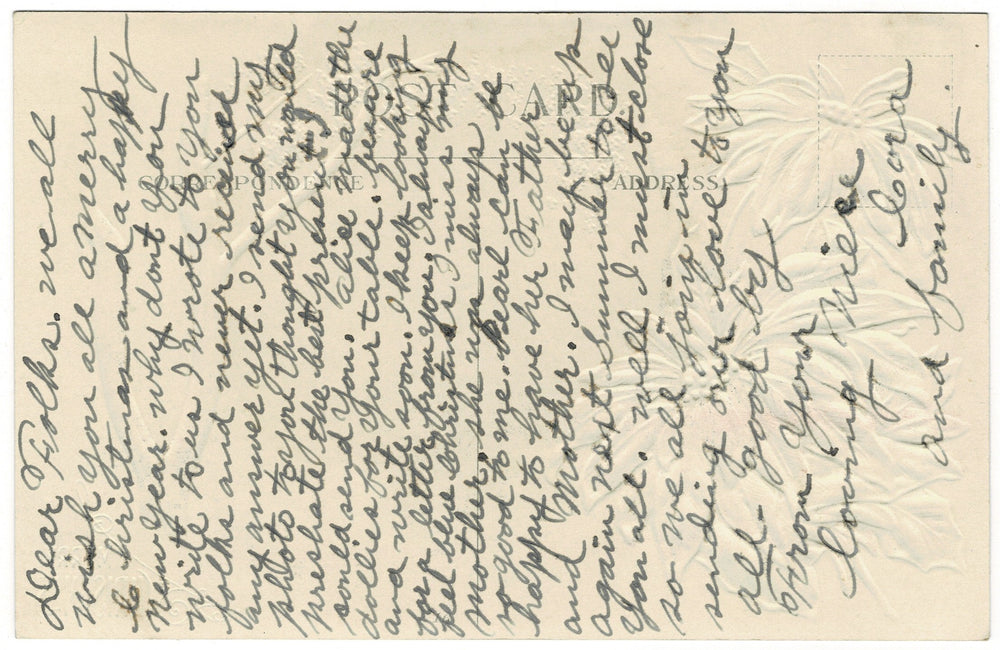 POST CARD
CORRESPONDENCE
ADDRESS
Dear Folks. we all
wish you all a merry
Christmas and a happy
New year. why dont you
write to us I wrote to you
folks and never received
any answer yet. I send my
photo to you thought you might
preshate the best present I
could send you. Alice made the
dollies for your table. be sure
and write soon. I keep looking
for a letter from you. I always
feel blue Christmas I miss my
mother she was always
so good to me. Pearl can be
happy to have her Father
and Mother. I may be up
again next Summer to see
you all. well I must close
so we all join in
sending our love to you
all. good by
From Your
loving Niece
Cora
and family.